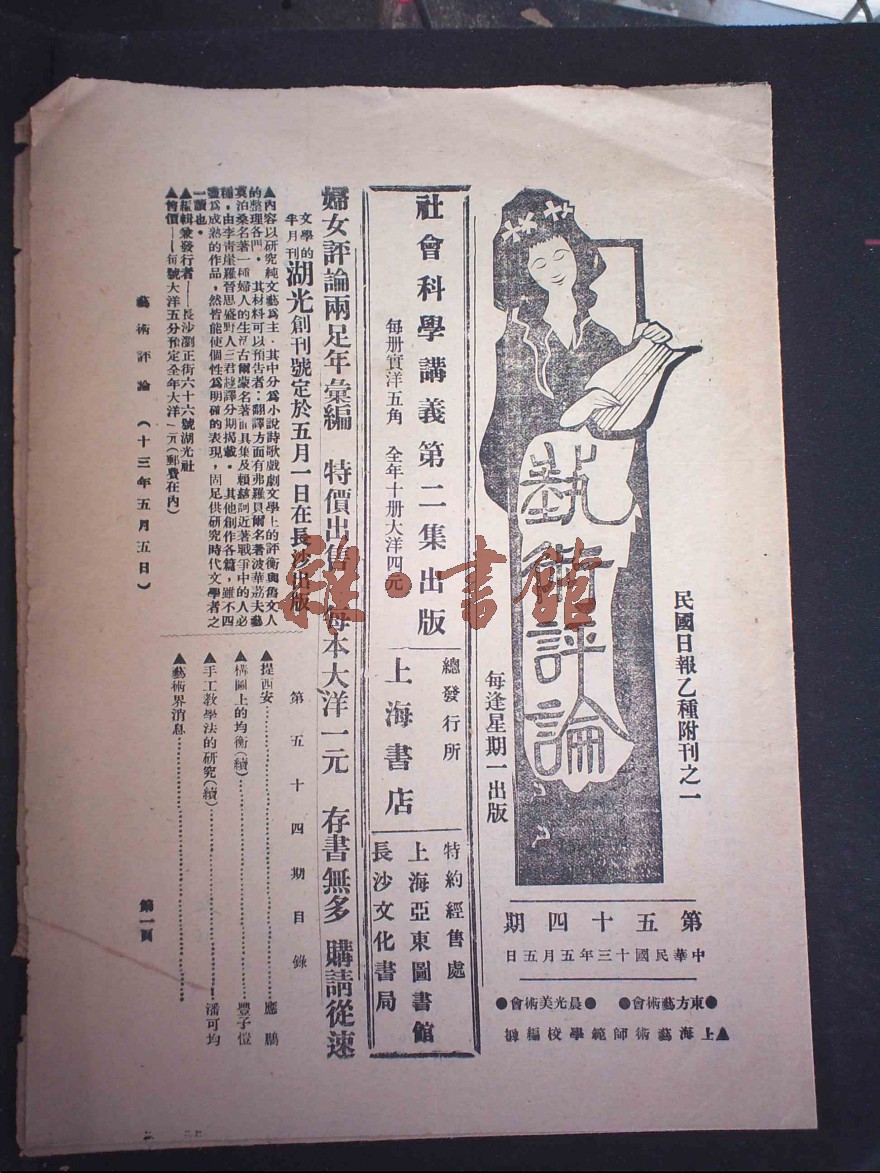 民國日報乙種附刊之一
藝術評論
每逢星期一出版
第五十四期
中華民國十三年五月五日
●東方藝術會● ●晨光美術會●
▲上海藝術師範學校編輯
社會科學講義第二集出版
每册實洋五角 全年十册大洋四元
總發行所
上海書店
特約經售處
上海亞東圖書館
長沙文化書局
婦女評論兩足年彙編 特價出售 每本大洋一元 存書無多 購請從速
文學的
半月刊
湖光創刊號定於五月一日在長沙出版
▲內容以研究純文藝爲主．其中分爲小說詩歌戲劇文學上的評衡與舊文人
的整理各門。其材料可以預告者：翻譯方面有弗羅貝爾名著波華荔夫藝
莫泊桑名著一種婦人的生活古爾蒙名著 具集及賴慈訶近著戰爭中的人必
種，由李靑崖羅晉思盛野人三君趕譯分期揭載。其他創作各篇，雖不四
盡爲成熟的作品，然皆能使個性爲明確的表現，固足供研究時代文學者之
一讀也。
▲編輯兼發行者——長沙瀏正街六十六號湖光社
▲售價——每號大洋五分預定全年大洋一元（郵費在內）
第五十四期目錄
▲提西安………應鵬
▲構圖上的均衡（續）………豐子愷
▲手工教學法的研究（續）………潘可均
▲藝術界消息………
藝術評論（十三年五月五日） 第一頁
雜·書館